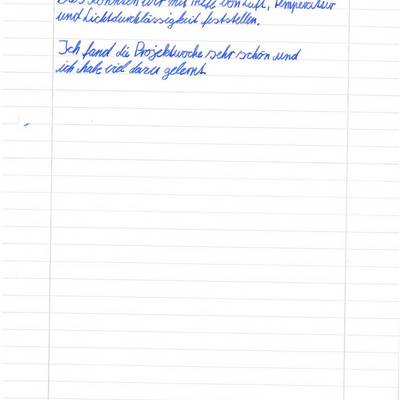 Das konnten wir mit Hilfe von Luft, Temperatur
und Lichtdurchlässigkeit feststellen.
Ich fand die Projektwoche sehr schön und
ich habe viel dazu gelernt.